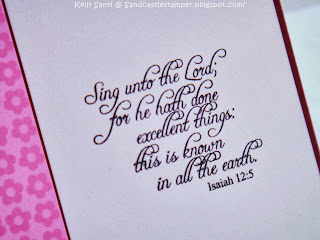 Kelly Santi @ Sandcastlestamper.blogspot.com/
Sing unto the Lord;
for he hath done
excellent things:
this is known
in all the earth.
Isaiah 12:5